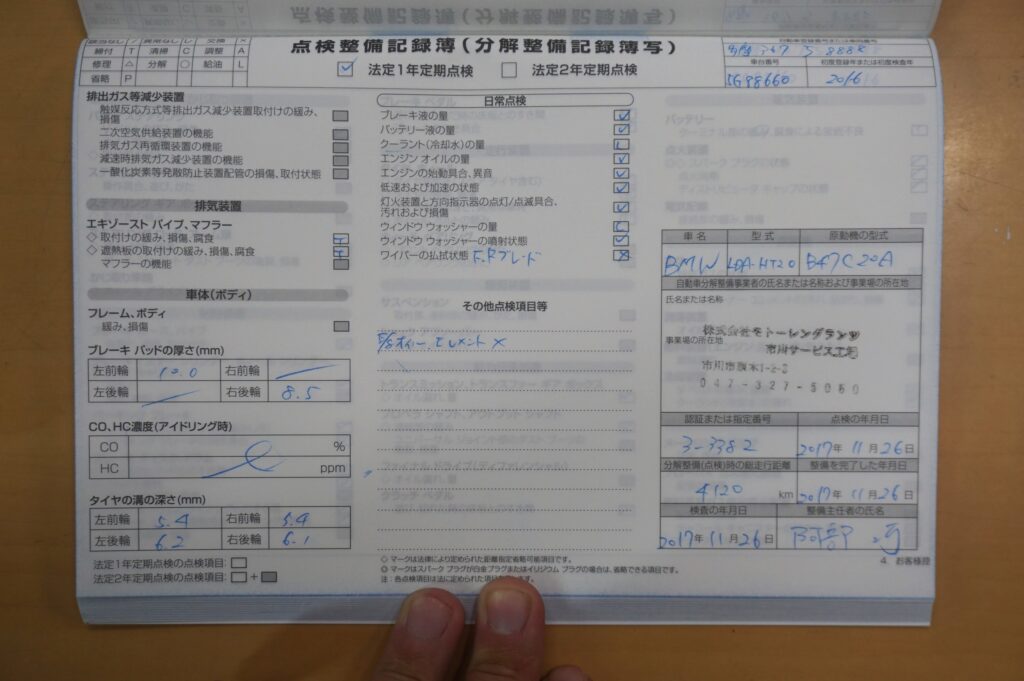 点検整備記録簿(分解整備記録簿写)
締付 T 清掃 C 調整 A
修理 △ 分解 ○ 給油 L
省略 P
✓ 法定1年定期点検 □ 法定2年定期点検
車台番号 初度登録年または初度検査年
5G98660 2016
排出ガス等減少装置
触媒反応方式等排出ガス減少装置取付けの緩み、
損傷
二次空気供給装置の機能
排気ガス再循環装置の機能
減速時排気ガス減少装置の機能
一酸化炭素等発散防止装置配管の損傷、取付状態
排気装置
エキゾースト パイプ、マフラー
◇ 取付けの緩み、損傷、腐食 T
◇ 遮熱板の取付けの緩み、損傷、腐食 T
マフラーの機能
車体(ボディ)
フレーム、ボディ
緩み、損傷
ブレーキ パッドの厚さ(mm)
左前輪 10.0 右前輪
左後輪 右後輪 8.5
CO、HC濃度(アイドリング時)
CO %
HC ppm
タイヤの溝の深さ(mm)
左前輪 5.4 右前輪 5.4
左後輪 6.2 右後輪 6.1
法定1年定期点検の点検項目:□
法定2年定期点検の点検項目:□+■
日常点検
ブレーキ液の量 ✓
バッテリー液の量 ✓
クーラント(冷却水)の量 L
エンジン オイルの量 ✓
エンジンの始動具合、異音 ✓
低速および加速の状態 ✓
灯火装置と方向指示器の点灯/点滅具合、
汚れおよび損傷 ✓
ウィンドウ ウォッシャーの量 L
ウィンドウ ウォッシャーの噴射状態 ✓
ワイパーの払拭状態 F.Rブレード ×
その他点検項目等
エレメント ×
◇ マークは法律により定められた距離指定省略可能項目です。
◎ マークはスパーク プラグが白金プラグまたはイリジウム プラグの場合は、省略できる項目です。
注:各点検項目は法に定められた項目
車名 型式 原動機の型式
BMW LDA-HT20 B47C20A
自動車分解整備事業者の氏名または名称および事業場の所在地
氏名または名称
株式会社モトーレングランツ
事業場の所在地
市川サービス工場
047-327-5050
認証または指定番号 点検の年月日
3-3382 2017年 11月26日
分解整備(点検)時の総走行距離 整備を完了した年月日
4120 km 2017年 11月26日
検査の年月日 整備主任者の氏名
2017年 11月26日 阿部
4. お客様控